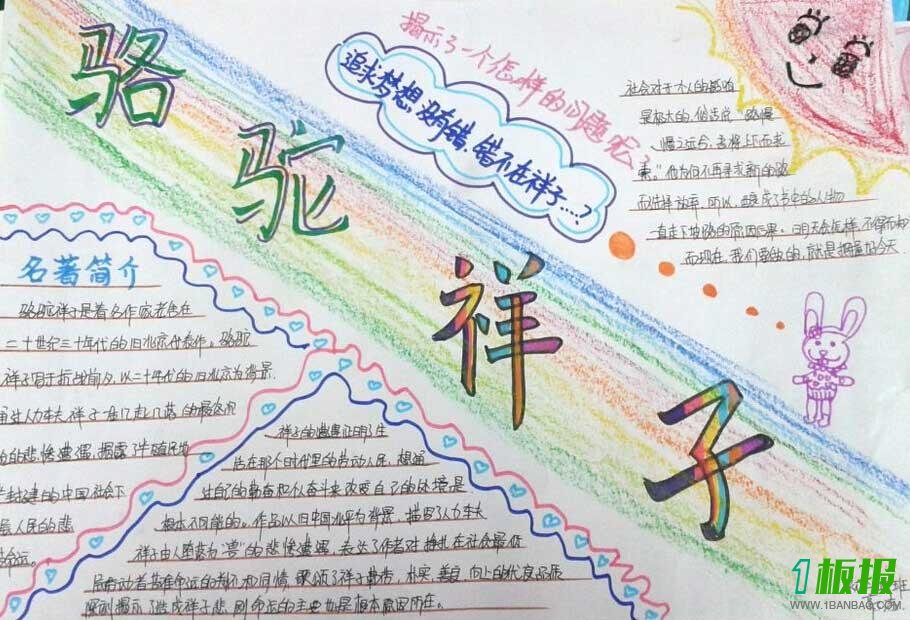 骆驼祥子
揭示了一个怎样的问题呢?
追求梦想,没有错,错不在祥子…?
社会对于个人的影响
是极大的,俗话说“路漫
漫其远兮,吾将上下而求
索。”他为何不再寻求新的路
而选择放弃,所以,造成了书中的人物
一直走下坡路的原因后果。明天会怎样,不得而知
而现在,我们要做的,就是把握好今天
名著简介
骆驼祥子是著名作家老舍在
二十世纪三十年代的旧北京代表作。骆驼
祥子写于抗战前夕,以二十年代的旧北京为背景
通过人力车夫祥子
的悲惨遭遇,揭露了
封建的中国社会下
人民的悲
命运。
祥子的遭遇证明了生
活在那个时代里的劳动人民,想通
过自己的勤奋和个人奋斗来改变自己的处境是
根本不可能的。作品以旧中国北平为背景,描写了人力车夫
祥子由人堕落为“兽”的悲惨遭遇,表达了作者对挣扎在社会最低
层劳动者悲惨命运的
深同情,歌颂了祥子勤劳,朴实,善良,向上的优良品质
深刻揭示了造成祥子悲剧命运的主要也是根本原因所在。
1板报
WWW.1BANBAO.COM